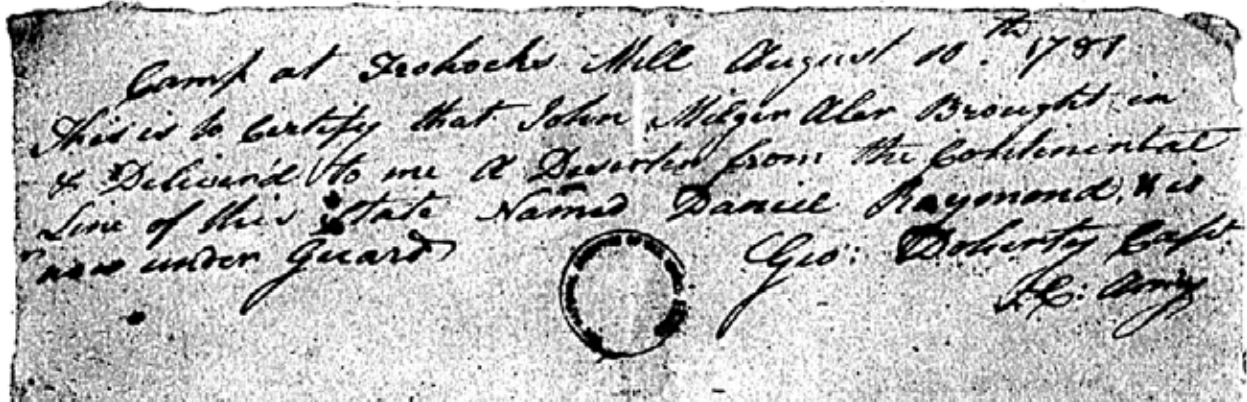 Camp at Frohocks Mill August 1781
This is to Certify that John Brought in
& Deliver'd to me A Deserter from the Continental
Line of this State Named Daniel Raymond, & is
now under Guard
Geo: Doherty Capt.
Army